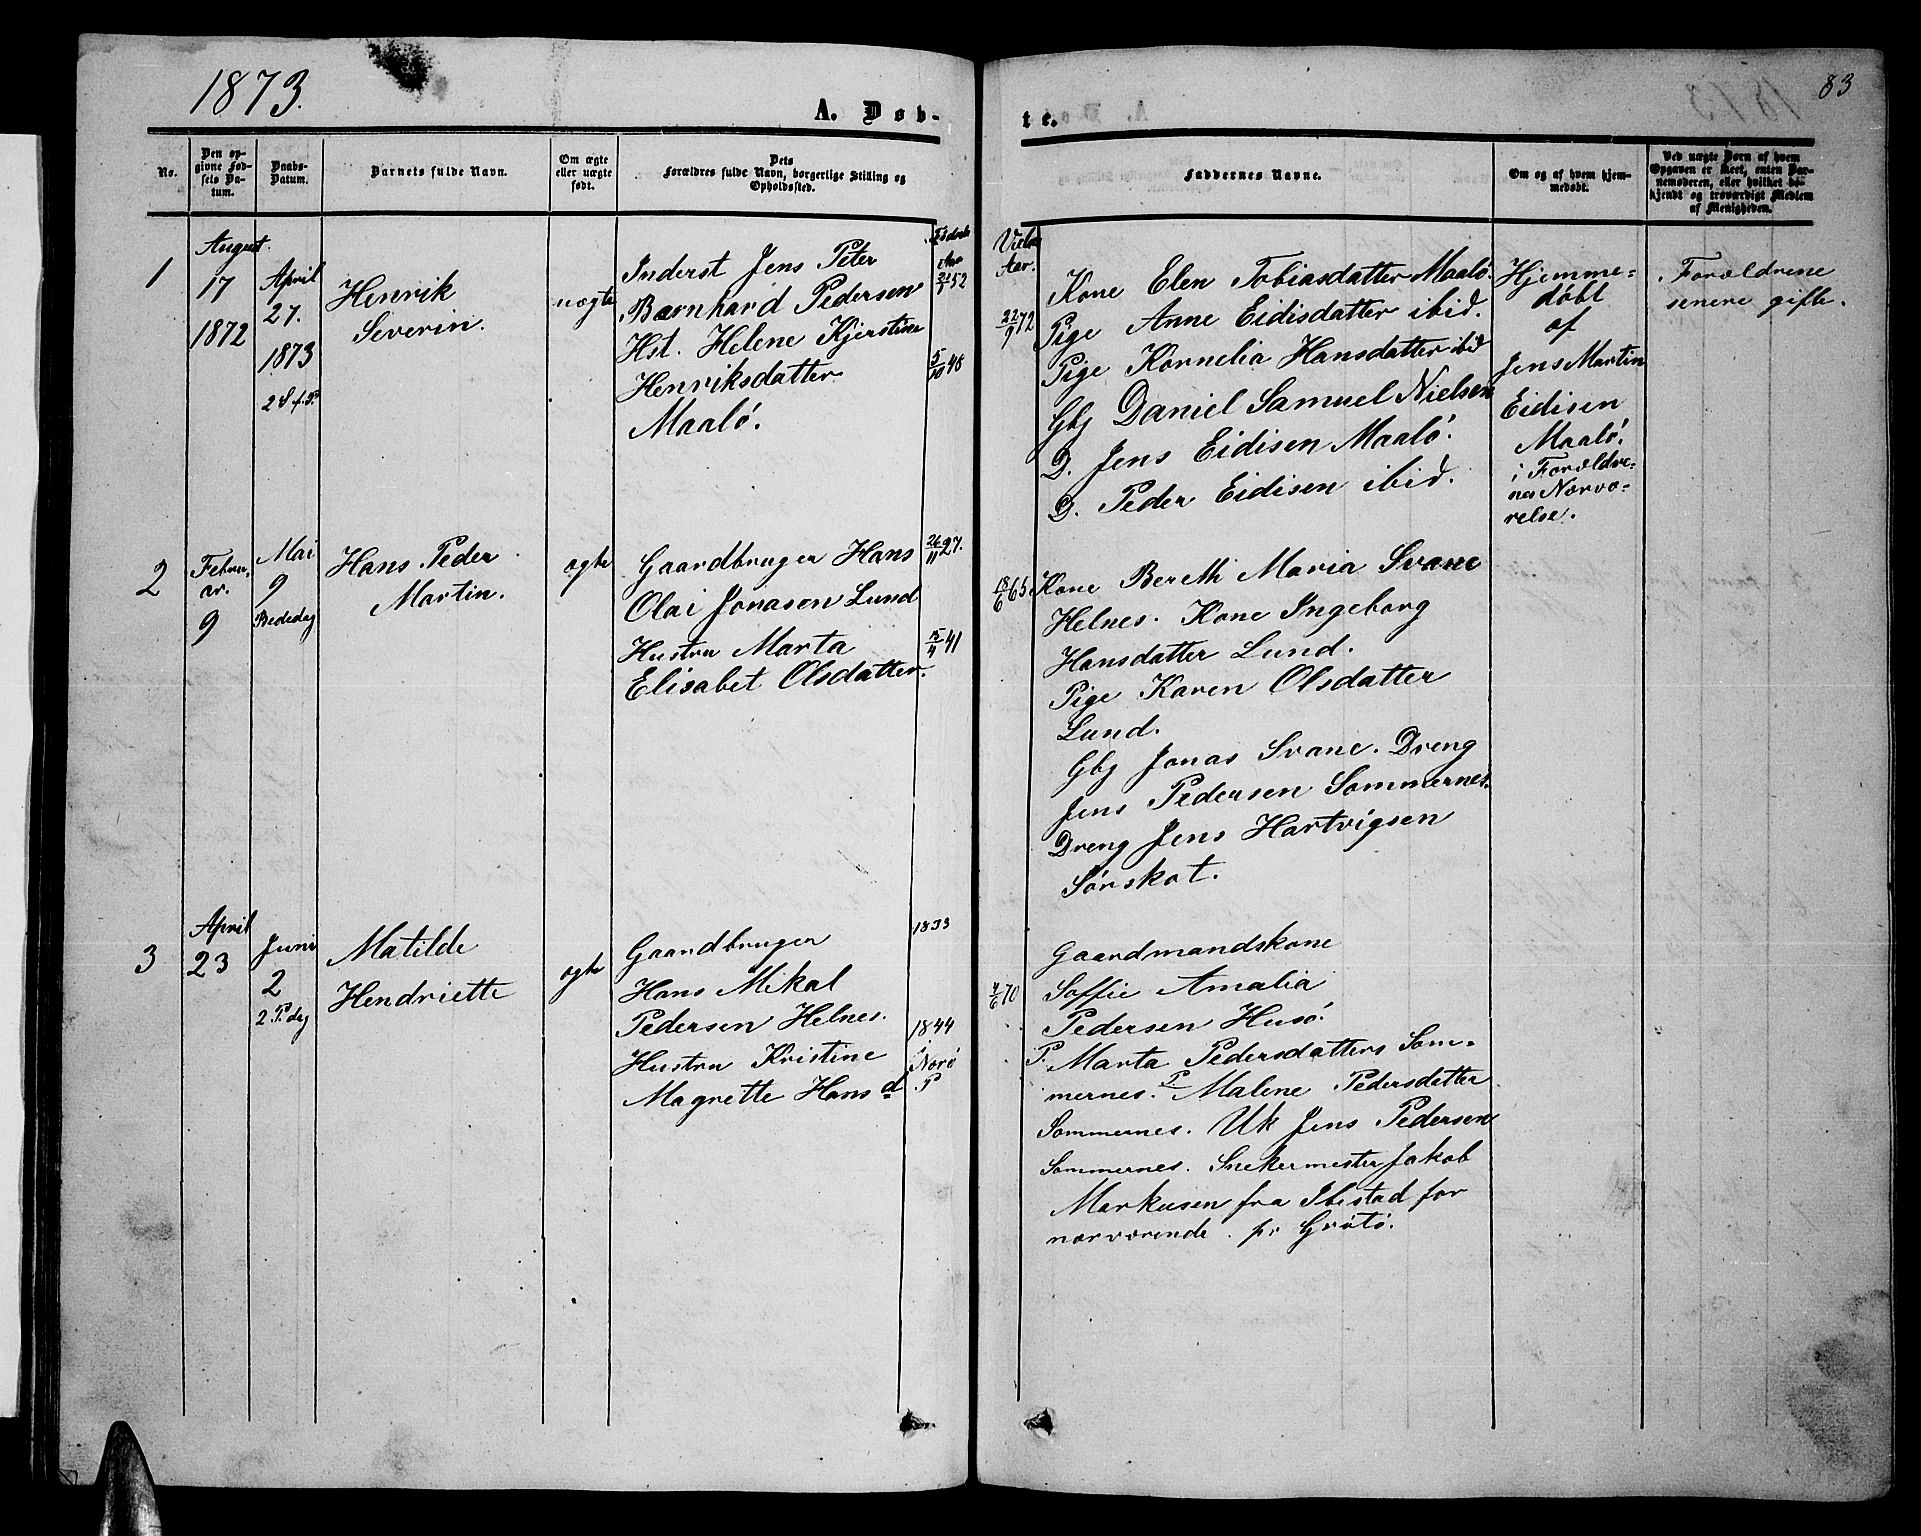 1873.
A. Døb-
te.
83
No.
Den op-
givne Fød-
sels Da-
tum.
Daabs-
Datum.
Barnets fulde Navn.
Om ægte
eller uægte
født.
Dets
Forældres fulde Navn, borgerlige Stilling og
Opholdssted.
Faddernes Navne.
Om og af hvem hjem-
medøbt.
Ved uægte Børn af hvem
Opgaven er skeet, enten Bar-
nemoderen, eller hvilket be-
kjendt og troværdigt Medlem
af Menigheden.
1
August.
17
1872
April
27.
1873
2 S. f. P.
Henrik
Severin.
uægte
Inderst Jens Peter
Bærnhard Pedersen
Hst. Helene Kjerstine
Henriksdatter
Maalö.
Födsels
Aar
52
5/10 48
Vielse
Aar.
72
Kone Elen Tobiasdatter Maalö.
Pige Anne Eidisdatter ibid.
Pige Kornelia Hansdatter ibid
Gbg Daniel Samuel Nielsen
D. Jens Eidisen Maalö.
D. Peder Eidisen ibid.
Hjemme=
döbt
af
Jens Martin
Eidisen
Maalö.
i Forældre=
nes Nærvæ=
relse.
Forældrene
senere gifte.
2
Febru-
ar.
9
Mai
9
Bededag
Hans Peder
Martin.
ægte
Gaardbruger Hans
Olai Jonasen Lund
Hustru Marta
Elisabet Olsdatter.
26/11 27.
15/4 41
18/6 65
Kone Bereth Maria Svane
Helnes. Kone Ingeborg
Hansdatter Lund.
Pige Karen Olsdatter
Lund.
Gbg Jonas Svane. Dreng
Jens Pedersen Sommernes.
Dreng Jens Hartvigsen
Sörskat.
3
April
23
Juni
2
2. P. dag
Matilde
Hendriette
ægte
Gaardbruger
Hans Mikal
Pedersen Helnes.
Hustru Kristine
Magrette Hansd
1833
1844
i
Nærö
P
70
Gaardmandskone
Soffie Amalia
Pedersen Husö.
P. Marta Pedersdatters Som=
mernes. P Malene Pedersdatter
Sommernes. Uk Jens Pedersen
Sommernes. Snekermester Jakob
Markusen fra Ibestad for
nærværende. pr Grötö.